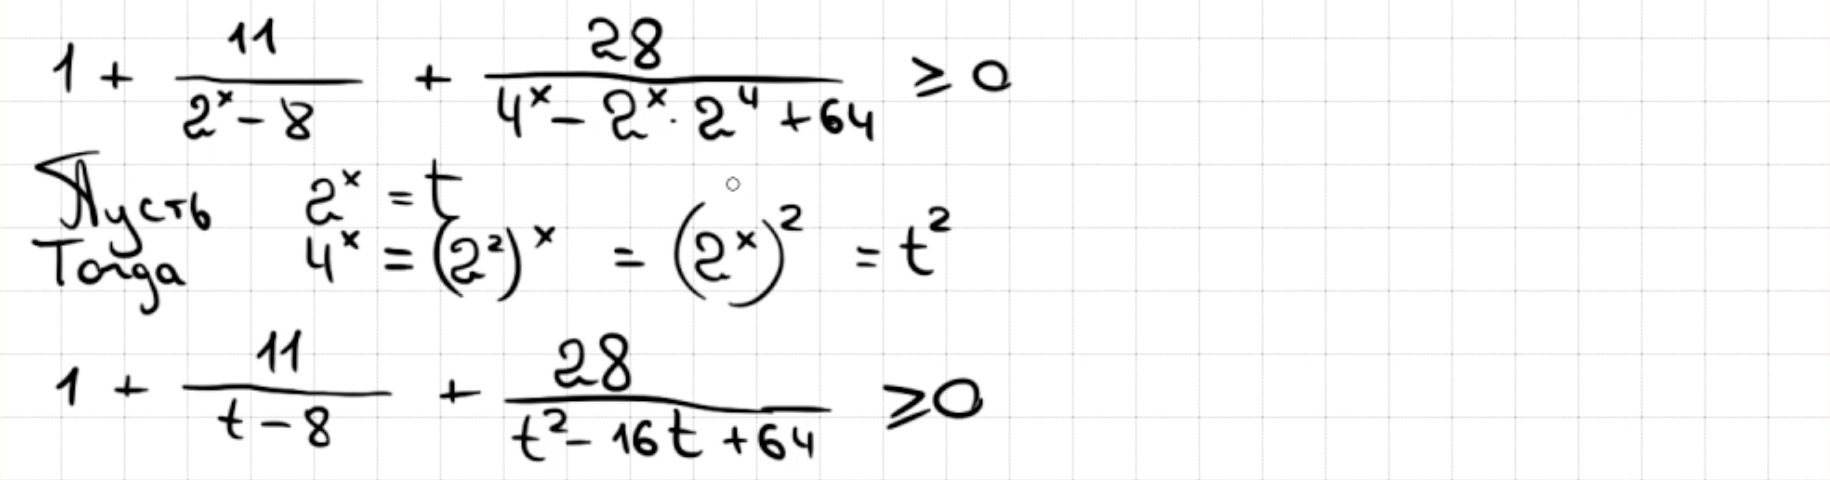 1 + 11/(2^x - 8) + 28/(4^x - 2^x · 2^4 + 64) ≥ 0
Пусть 2^x = t
Тогда 4^x = (2^2)^x = (2^x)^2 = t^2
1 + 11/(t - 8) + 28/(t^2 - 16t + 64) ≥ 0